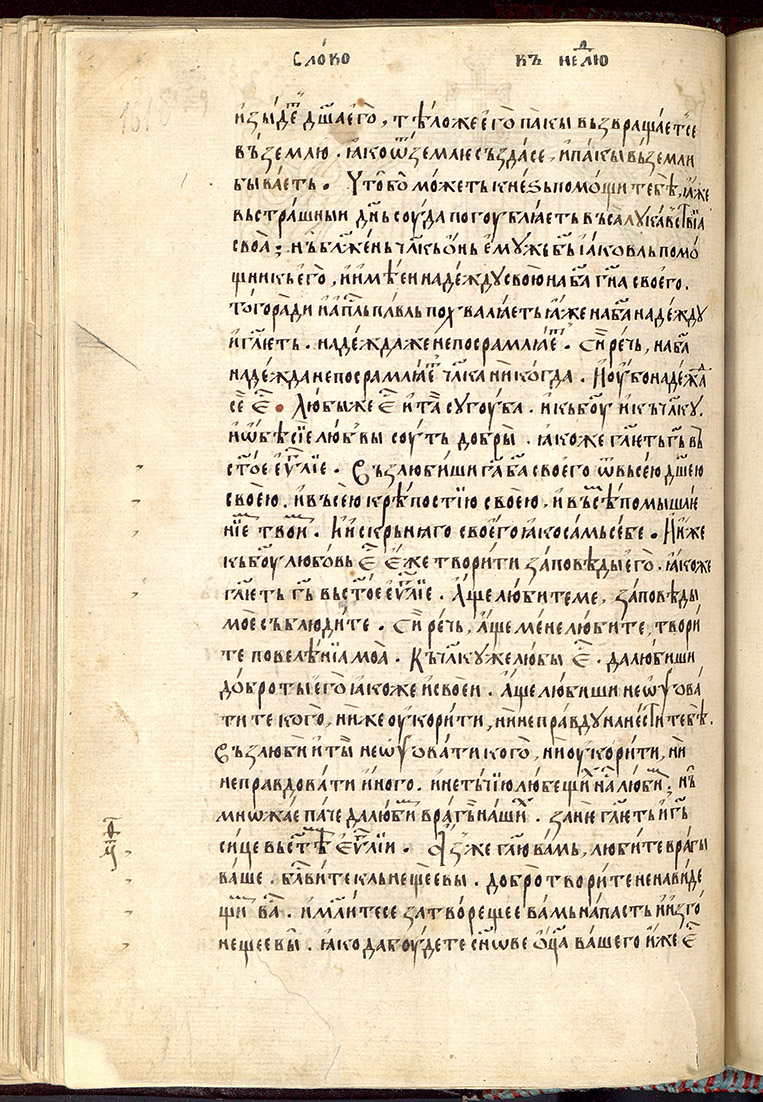 Слово въ недⷧ҇ю
изы́деⷮ дш҃а е҆го̀, тѣло же е҆го̀ па́кы възвраща́етсе
въ зе́млю. ꙗ҆ко ѿ земли́е създа́ се, и҆ па́кы въ земли
быва́еть. Что̀ бо мо́жеть кнеꙃь помо́щи тебѣ, ꙗ҆́же
вь стра́шныи дн҃ь соуда погоублꙗ́еть въса̀ лука́вьствїа
своа̀; нъ бл҃же́нь чл҃кь ѻ҆́нь є҆му́же бг҃ь і҆а́ковль помо́
щникь е҆го̀, и҆ и҆мѣ́еи наде́жду свою̀ на ба҃ гн҃а свое́го.
того̀ ради и҆ а҆пⷭ҇ль па́вль похвалꙗ́еть ꙗ҆́же на ба҃ наде́жду
и҆ гл҃еть. наде́жда же не посрамлꙗ́еⷮ. Си́ рѣчь, на ба҃
наде́жда не посрамлꙗ́еⷮ чл҃ка ни́когда. И҆ оу҆́бо наде́жⷣа
се̏ є҆ⷭ҇. Любы же є҆ⷭ҇ и҆ та̀ сугоуба. и҆ кь бг҃оу и҆ къ чл҃ку.
и҆ ѡ҆бѣ сїе любѵы соуть добры̀. ꙗ҆коже гл҃еть гь҃ въ
ст҃о́е еѵⷢ҇лїе. Възлюбиши га҃ ба҃ свое́го ѿ вьсе́ю дш҃ею
свое́ю. и҆ въсе́ю крѣ́постїю свое́ю. и҆ въсѣⷨ помышле
нїеⷨ твоиⷨ. И҆ и҆скрьнꙗго свое́го ꙗ҆ко самь се́бе. И҆ и҆же
кь бг҃оу любо́вь є҆ⷭ҇ е҆́же твори́ти за́повѣды е҆го̀. ꙗ҆коже
гл҃еть гь҃ вь ст҃о́е еѵⷢ҇лїе. А҆ще лю́бите ме, за́повѣды
мое̏ съблюди́те. Си́ рѣчь, а҆́ще ме́не лю́бите, твори́
те повелѣ́нїа моа̀. Къ чл҃ку же любы є҆ⷭ҇. да лю́биши
до́броты е҆го̀ ꙗ҆коже и҆ свои. А҆ще лю́биши не ѡ҆ѱова́
ти те кого̀, ни́же оу҆кори́ти, ни не пра́вду нане́сти тебѣ.
Възлю́би и҆ ты̀ не ѡ҆ѱова́ти кого̀, ни оу҆кори́ти, ни
непра́вдовати и҆́ного. и҆ не тъчїю любещиⷯ наⷭ҇ любиⷨ, нъ̀
мнѡжа́е па́че да любиⷨ враⷢ҇ы на́шиⷯ. зане́ гл҃еть и҆ гь҃
си́це вь ст҃ѣⷨ еѵⷢ҇лїи. А҆́з же гл҃ю ва́мь, люби́те вра́гы
ва́ше. бл҃ви́те кльне́щеевы. добро̀ твори́те ненави́де
щиⷨ ваⷭ҇. и҆ мл҃и́тесе за творе́щее ва́мь на́пасть и҆ и҆зго́
неще́е вы̀. ꙗ҆ко да боу́дете сн҃ове ѻ҆ц҃а ва́шего и҆́же є҆ⷭ҇